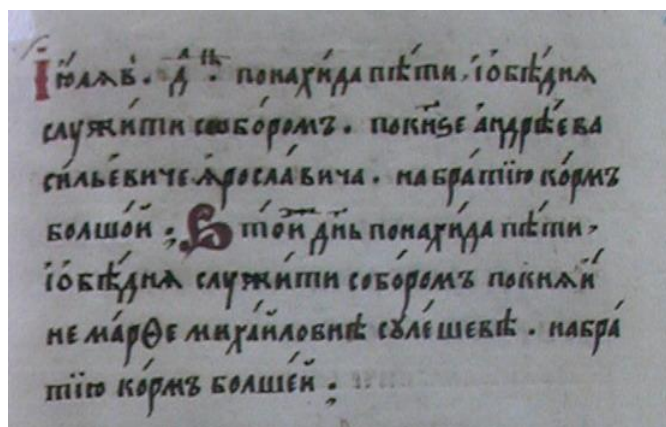 Іюля в҃. д҃ н҃ . понахи́да пѣ́ти, і҆ ѻ҆бѣ́дня
служи́ти собо́ромъ . по кн҃зе а҆ндрѣ́е ва
си́лье́виче ꙗ҆росла́вича . на бра́тїю ко́рмъ
болшо́й : В то́й дн҃ь понахи́да пѣ́ти,
і҆ ѻ҆бѣ́дня служи́ти собо́ромъ по княги́
не ма́рѳе миха́йловнѣ сꙋле́шевѣ . на бра́
тїю ко́рмъ болше́й :